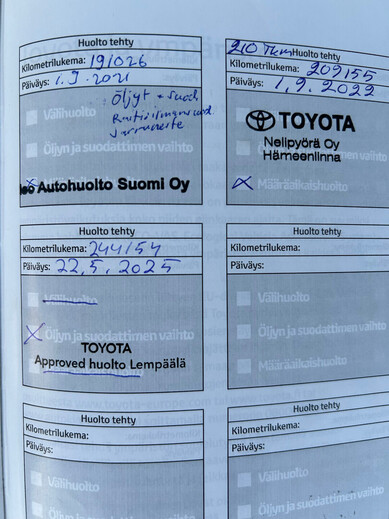 Huolto tehty
Kilometrilukema: 191026
Päiväys: 1.9.2021
Öljyt + suod.
Välihuolto
Raitisilmasuod.
Jarruneste
Öljyn ja suodattimen vaihto
Autohuolto Suomi Oy
210 Tkm Huolto tehty
Kilometrilukema: 209155
Päiväys: 1.9.2022
TOYOTA
Nelipyörä Oy
Hämeenlinna
Määräaikaishuolto
Huolto tehty
Kilometrilukema: 244154
Päiväys: 22.5.2025
Välihuolto
Öljyn ja suodattimen vaihto
TOYOTA
Approved huolto Lempäälä
Huolto tehty
Kilometrilukema:
Päiväys:
Välihuolto
Öljyn ja suodattimen vaihto
Määräaikaishuolto
Huolto tehty
Kilometrilukema:
Päiväys:
Välihuolto
Huolto tehty
Kilometrilukema:
Päiväys:
Välihuolto
Öljyn ja suodattimen vaihto